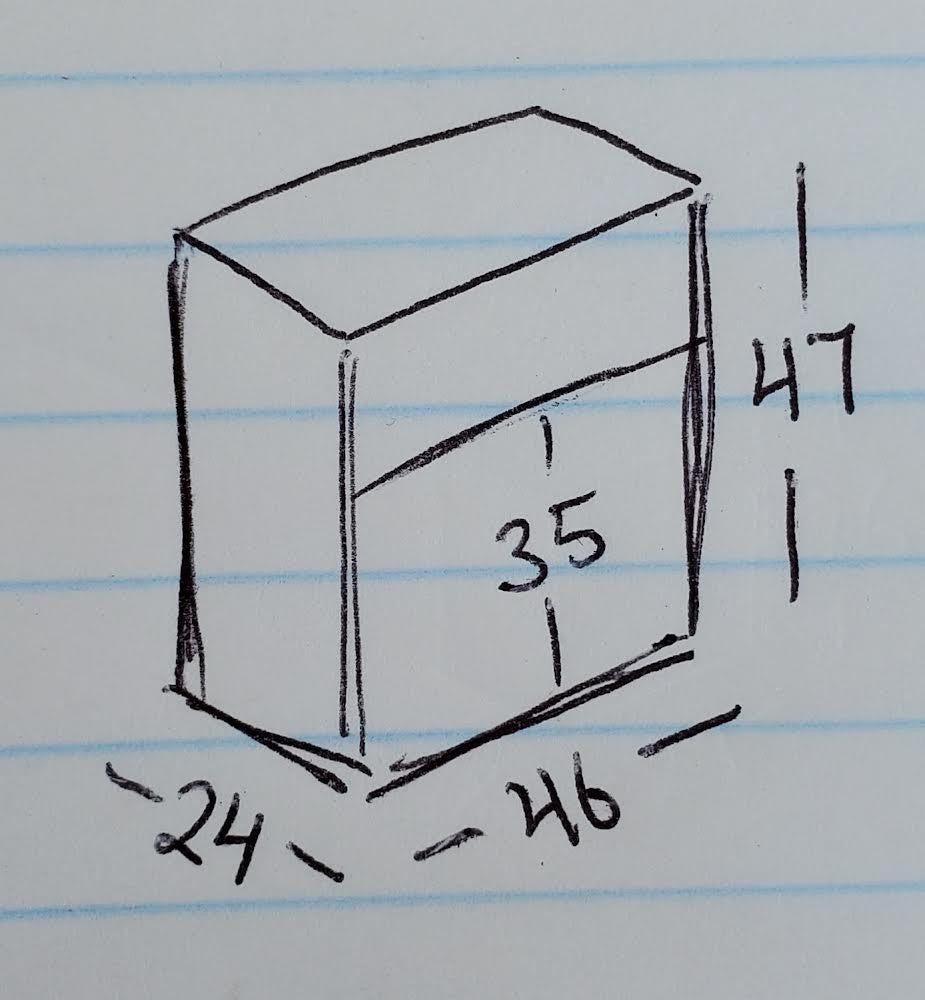 47
35
24
46